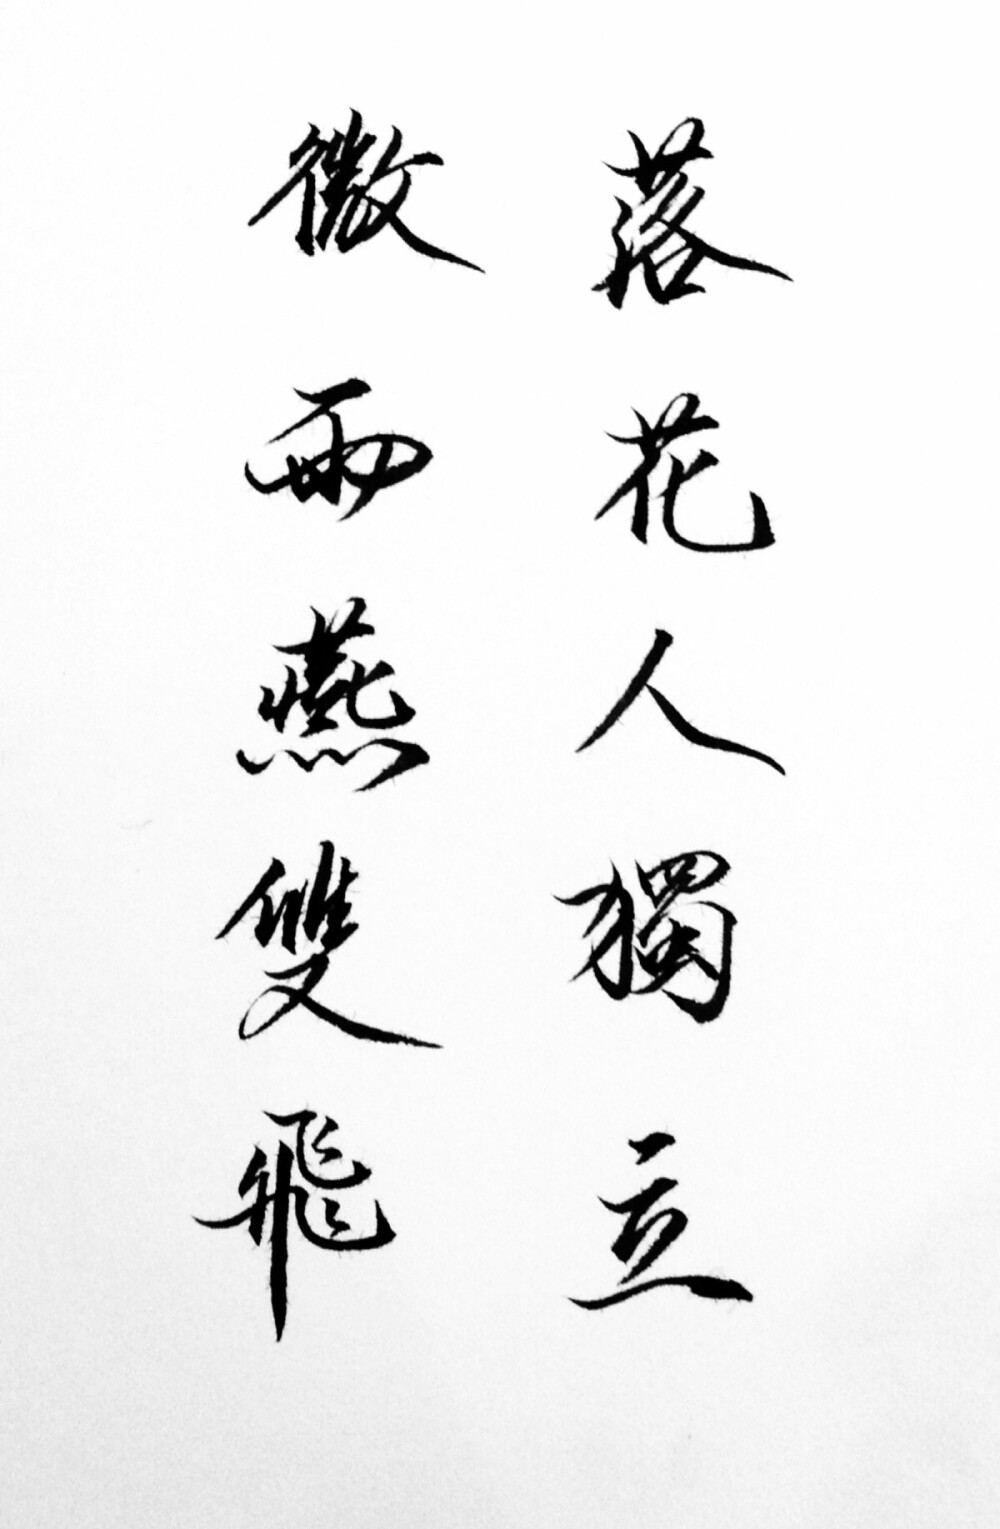 落花人獨立
微雨燕雙飛